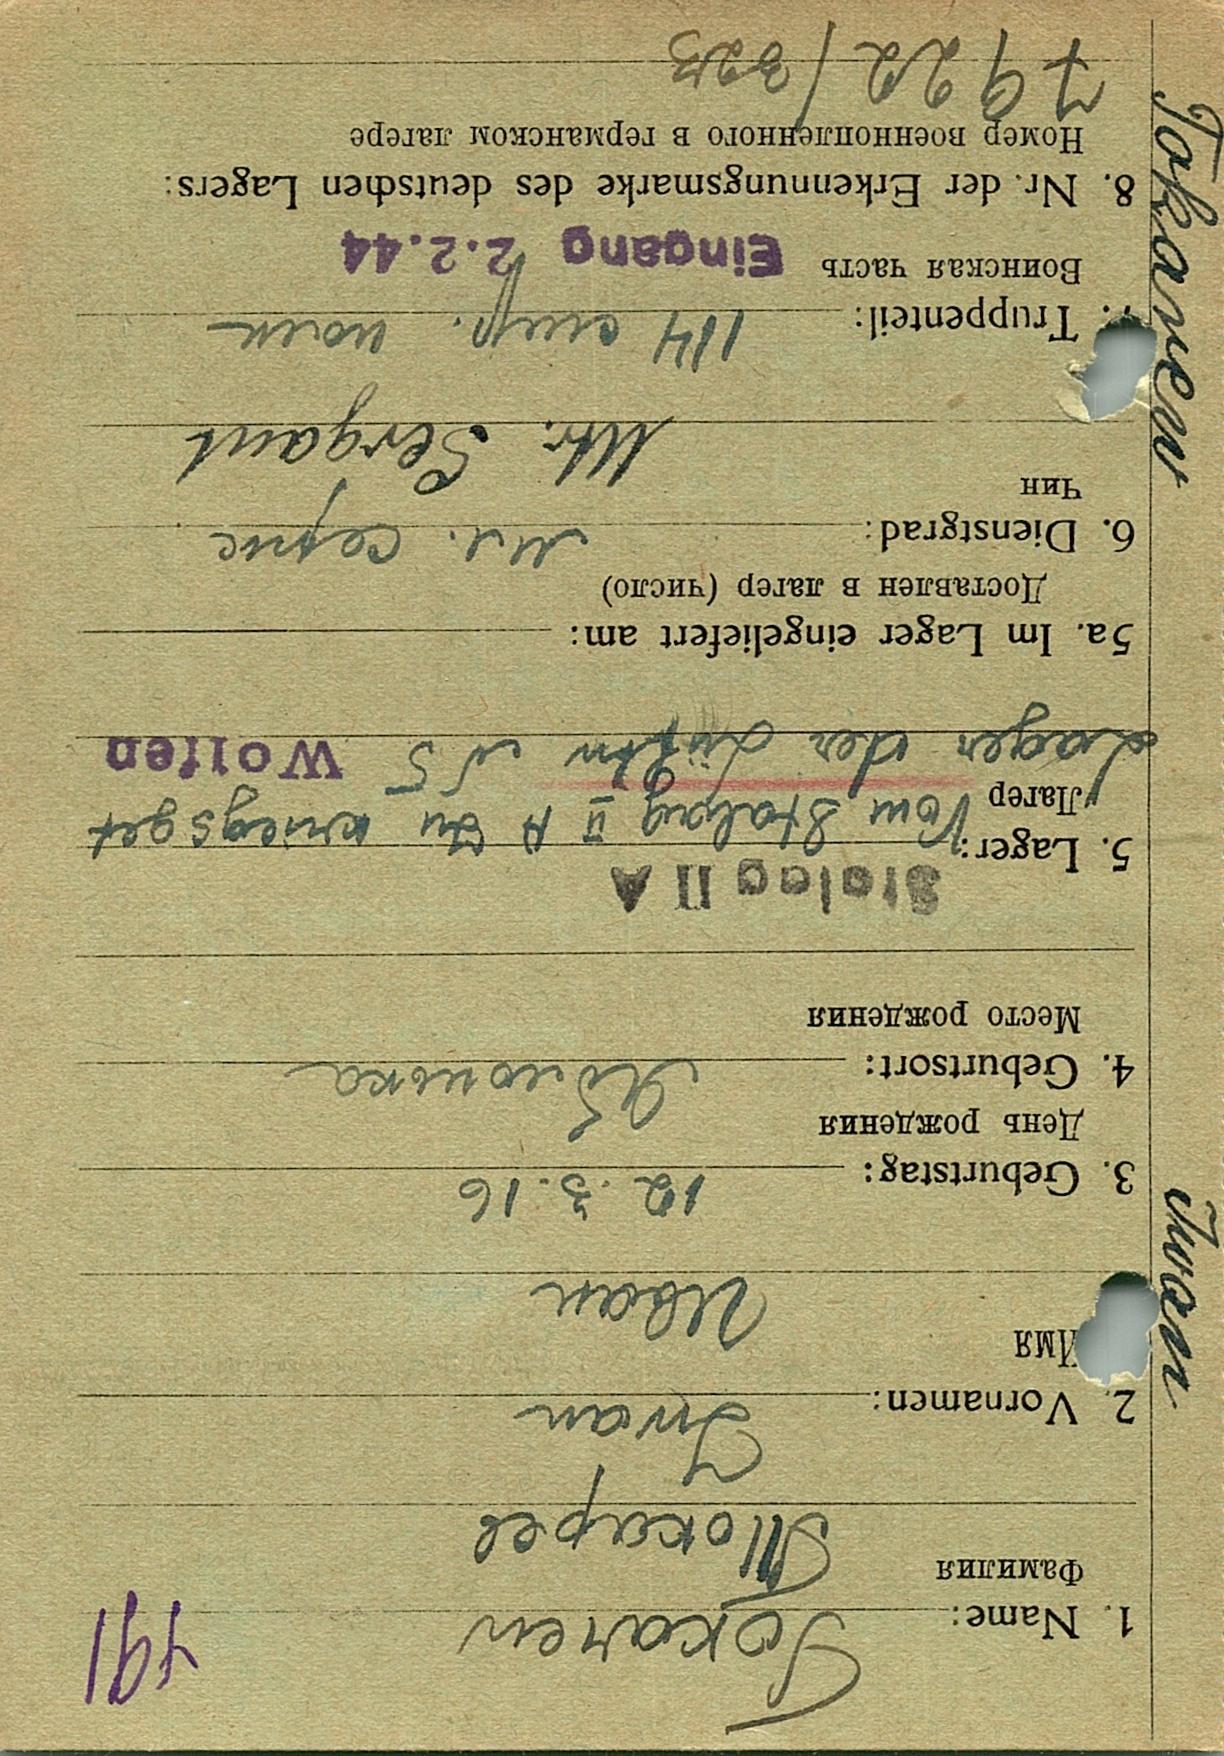 Tokarew Iwan
491
1. Name: Tokarew
Фамилия Токарев
2. Vornamen: Iwan
Имя Иван
3. Geburtstag: 12.3.16
День рождения
4. Geburtsort: Яблонька
Место рождения
Stalag II A
5. Lager: Vom Stalag II A zu kriegsgef
Лагер
Lager der Luftw N 5 Wolfen
5a. Im Lager eingeliefert am:
Доставлен в лагер (число)
6. Dienstgrad: Мл. серж
Чин
Utr. Sergant
7. Truppenteil: 114 стр. полк
Воинская часть Eingang 2.2.44
8. Nr. der Erkennungsmarke des deutschen Lagers:
Номер военнопленного в германском лагере
7922/323